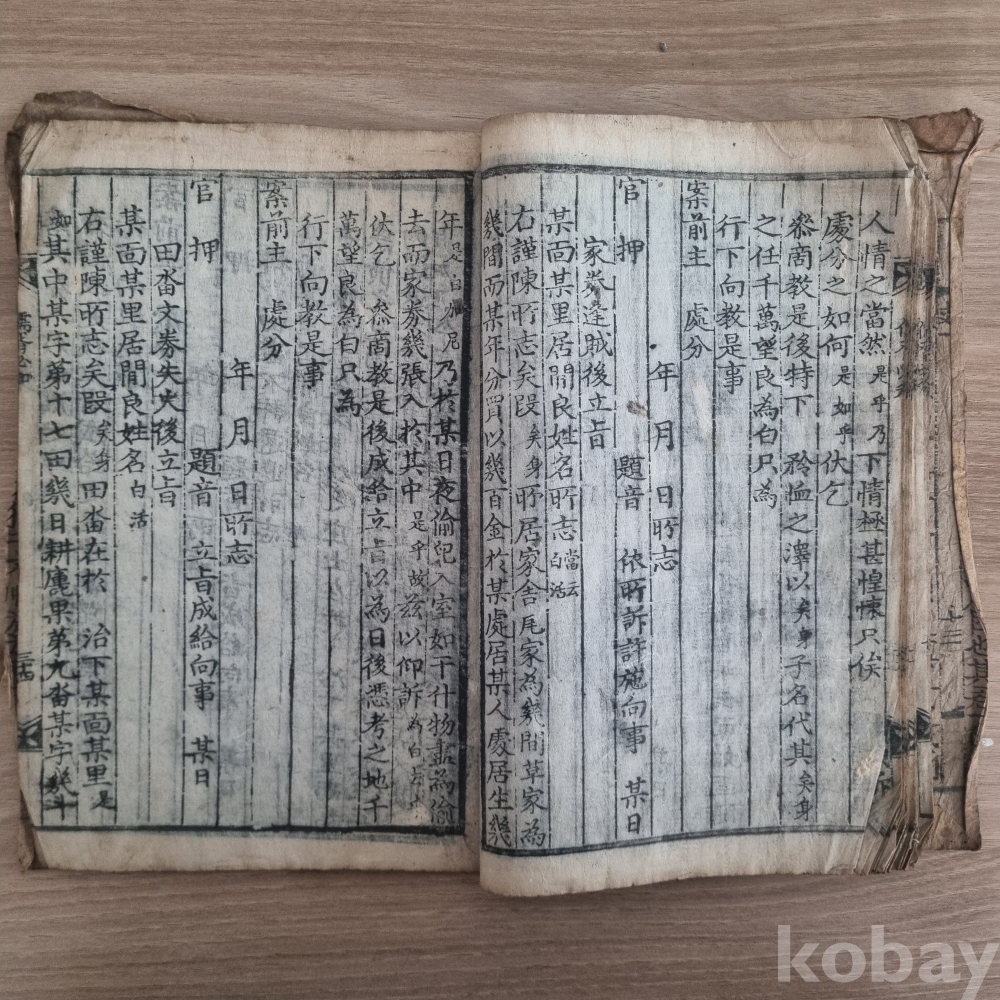 人情之當然是乎乃下情極甚惶悚只俟
處分之如何是如乎伏乞
叅商教是後特下 矜恤之澤以矣身子名代其矣身
之任千萬望良為白只為
行下向教是事
案前主 處分
年 月 日所志
官 押 題音 依所訴許施向事 某日
家券逢賊後立旨
某面某里居閒良姓名所志當云白活
右謹陳所志矣段矣身所居家舍尾家為幾間草家為
幾間而某年分買以幾百金於某處居某人處居生幾
年是白尼乃於某日夜偷兒入室如干什物盡為偷
去而家券幾張入於其中是乎故玆以仰訴為白去乎
伏乞 叅商教是後成給立旨以為日後憑考之地千
萬望良為白只為
行下向教是事
案前主 處分
年 月 日所志
官 押 題音 立旨成給向事 某日
田畓文券失火後立旨
某面某里居閒良姓名白活
右謹陳所志矣段矣身田畓在於 治下某面某里是
如其中某字第十七田幾日耕廤果第九畓某字幾斗
儒胥必知
二十四
kobay